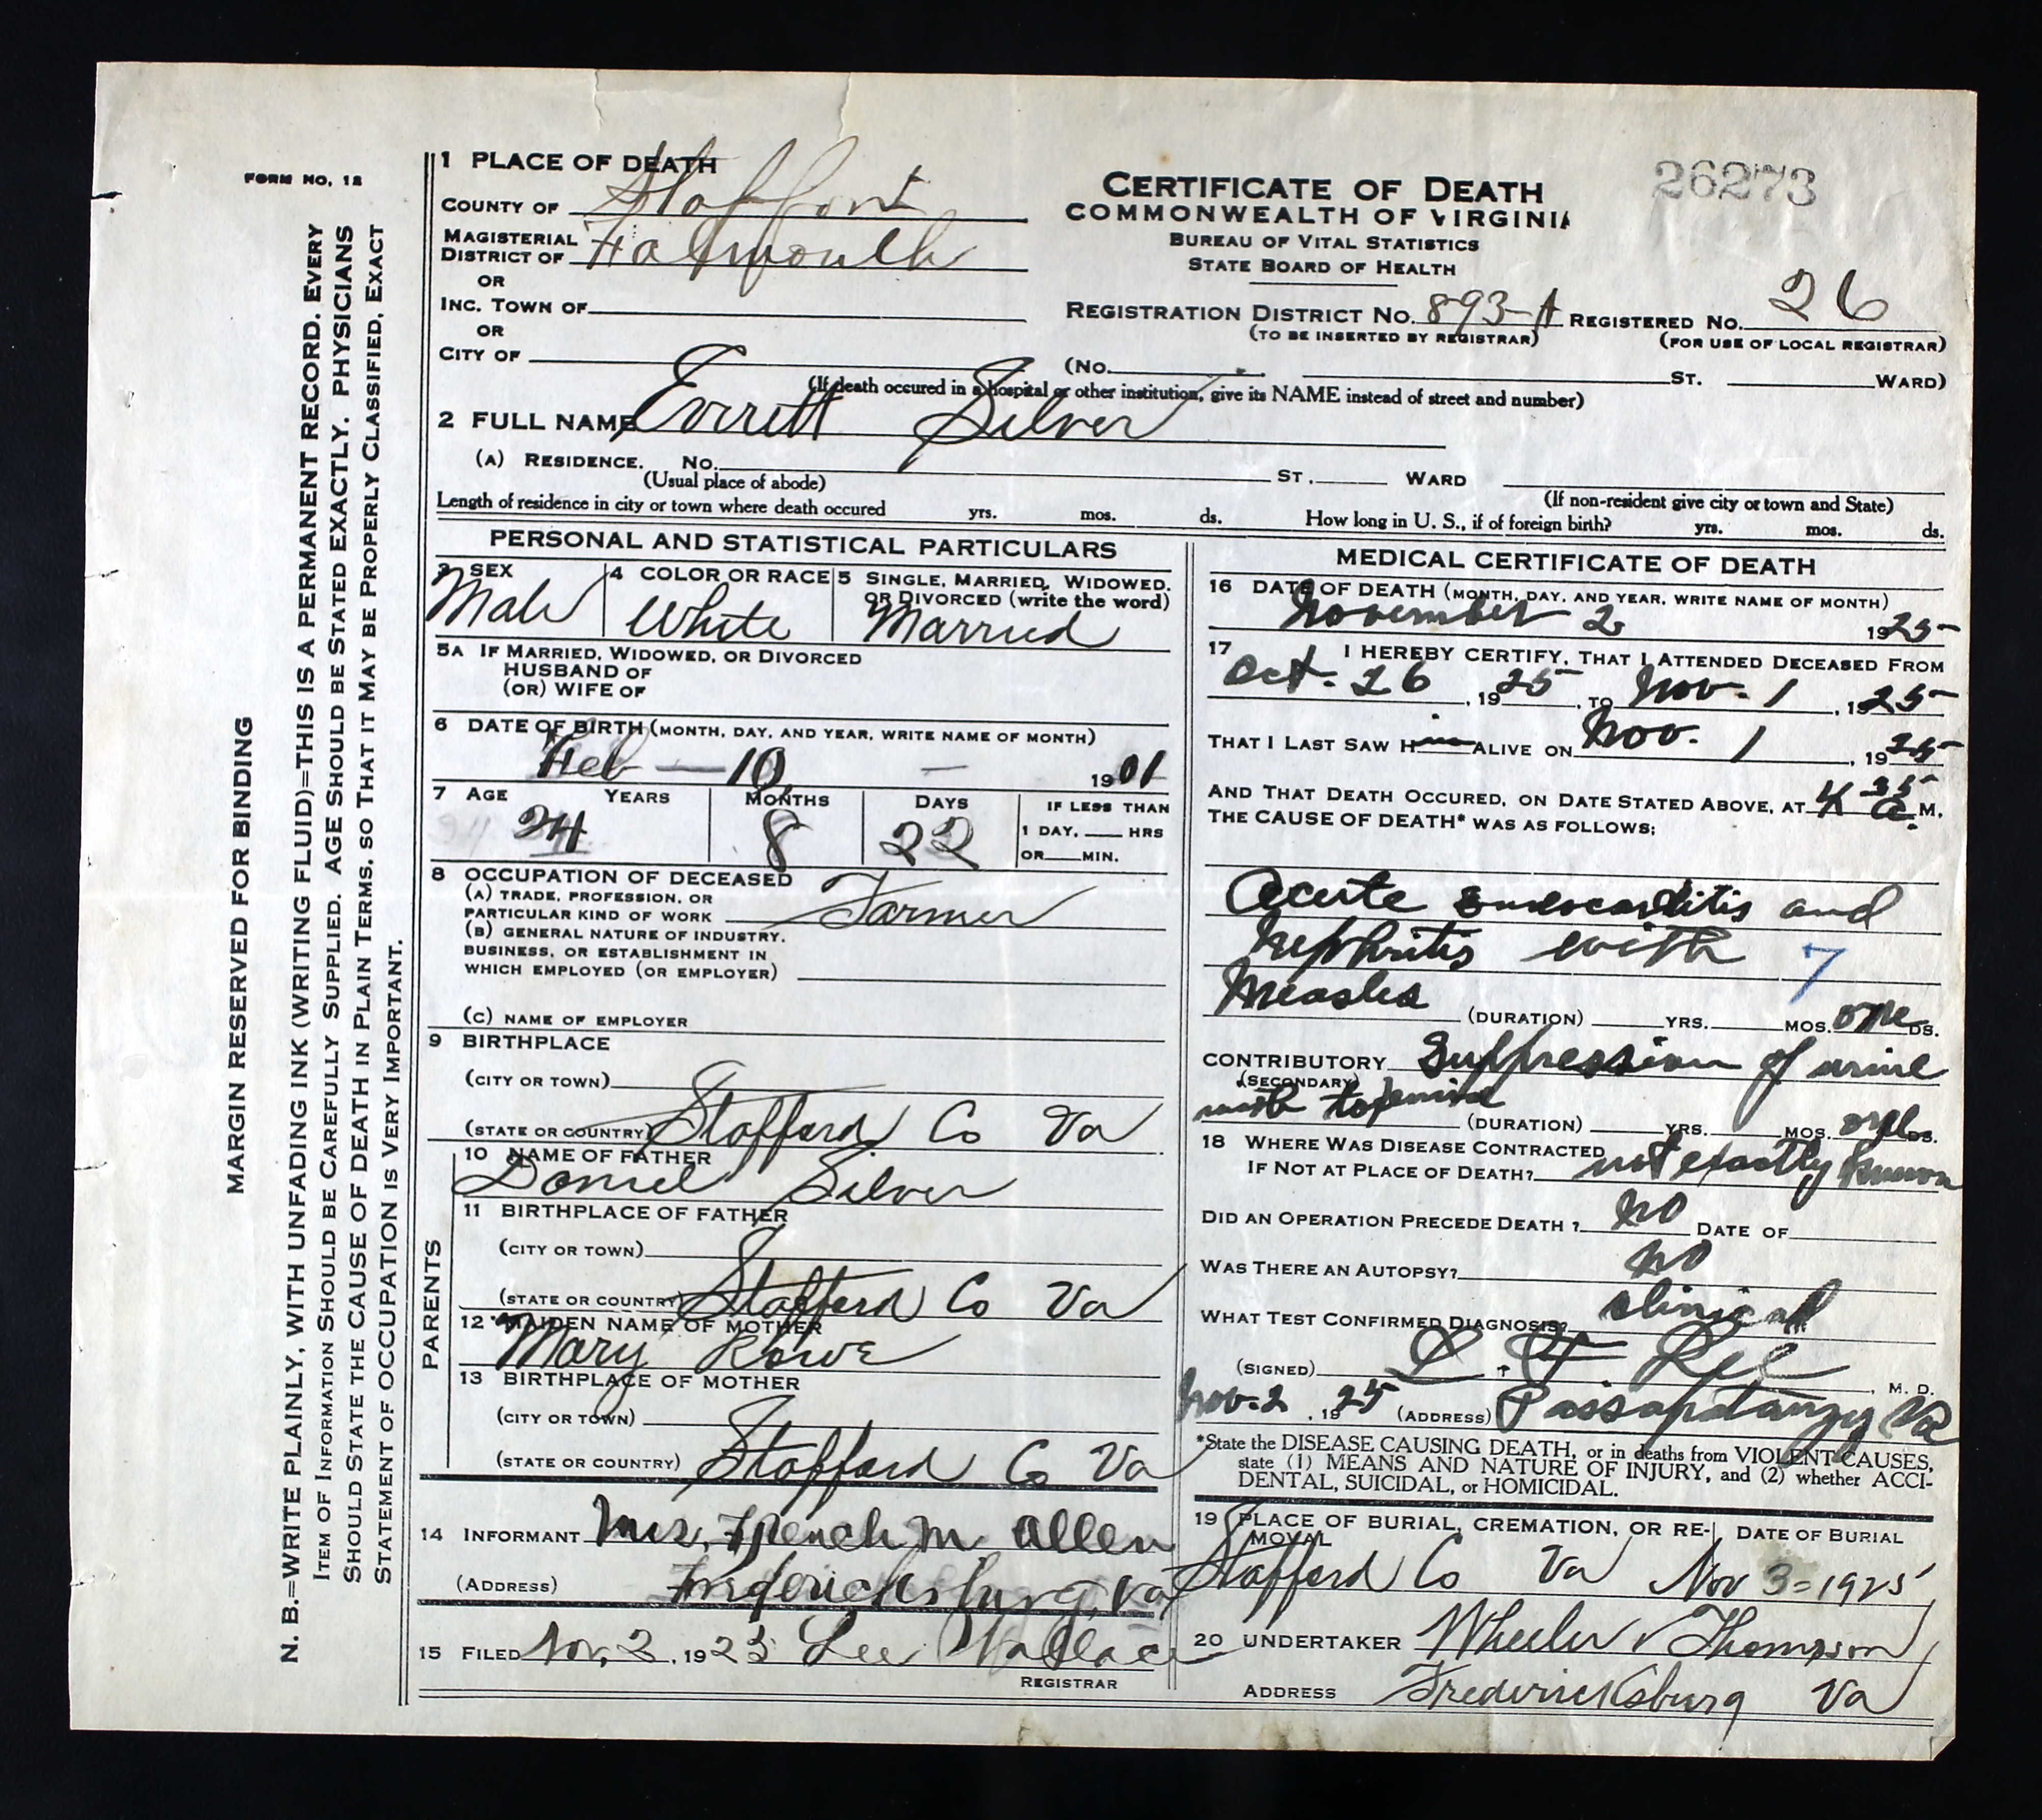 FORM NO. 12
MARGIN RESERVED FOR BINDING
N. B.=WRITE PLAINLY, WITH UNFADING INK (WRITING FLUID)=THIS IS A PERMANENT RECORD. EVERY
ITEM OF INFORMATION SHOULD BE CAREFULLY SUPPLIED. AGE SHOULD BE STATED EXACTLY. PHYSICIANS
SHOULD STATE THE CAUSE OF DEATH IN PLAIN TERMS, SO THAT IT MAY BE PROPERLY CLASSIFIED. EXACT
STATEMENT OF OCCUPATION IS VERY IMPORTANT.
1 PLACE OF DEATH
COUNTY OF Stafford
MAGISTERIAL DISTRICT OF Falmouth
OR
INC. TOWN OF
OR
CITY OF
CERTIFICATE OF DEATH
COMMONWEALTH OF VIRGINIA
BUREAU OF VITAL STATISTICS
STATE BOARD OF HEALTH
26273
REGISTRATION DISTRICT NO. 893-A REGISTERED NO. 26
(TO BE INSERTED BY REGISTRAR) (FOR USE OF LOCAL REGISTRAR)
(NO. ST. WARD)
(If death occured in a hospital or other institution, give its NAME instead of street and number)
2 FULL NAME Everett Silver
(A) RESIDENCE. NO. ST. WARD
(Usual place of abode) (If non-resident give city or town and State)
Length of residence in city or town where death occured yrs. mos. ds. How long in U. S., if of foreign birth? yrs. mos. ds.
PERSONAL AND STATISTICAL PARTICULARS
3 SEX 4 COLOR OR RACE 5 SINGLE, MARRIED, WIDOWED, OR DIVORCED (write the word)
Male White Married
5A IF MARRIED, WIDOWED, OR DIVORCED
HUSBAND OF
(OR) WIFE OF
6 DATE OF BIRTH (MONTH, DAY, AND YEAR, WRITE NAME OF MONTH)
Feb — 10 — 1901
7 AGE YEARS MONTHS DAYS IF LESS THAN
24 8 22 1 DAY, HRS
OR MIN.
8 OCCUPATION OF DECEASED
(A) TRADE, PROFESSION, OR
PARTICULAR KIND OF WORK Farmer
(B) GENERAL NATURE OF INDUSTRY,
BUSINESS, OR ESTABLISHMENT IN
WHICH EMPLOYED (OR EMPLOYER)
(C) NAME OF EMPLOYER
9 BIRTHPLACE
(CITY OR TOWN)
(STATE OR COUNTRY) Stafford Co Va
PARENTS
10 NAME OF FATHER
Daniel Silver
11 BIRTHPLACE OF FATHER
(CITY OR TOWN)
(STATE OR COUNTRY) Stafford Co Va
12 MAIDEN NAME OF MOTHER
Mary Rowe
13 BIRTHPLACE OF MOTHER
(CITY OR TOWN)
(STATE OR COUNTRY) Stafford Co Va
14 INFORMANT Mrs. French M Allen
(ADDRESS) Fredericksburg, Va
15 FILED Nov, 2, 1925 Lee Wallace
REGISTRAR
MEDICAL CERTIFICATE OF DEATH
16 DATE OF DEATH (MONTH, DAY, AND YEAR, WRITE NAME OF MONTH)
November 2 1925
17 I HEREBY CERTIFY, THAT I ATTENDED DECEASED FROM
Oct. 26, 1925, TO Nov. 1, 1925
THAT I LAST SAW HIM ALIVE ON Nov. 1, 1925
AND THAT DEATH OCCURED, ON DATE STATED ABOVE, AT 4 35 A. M.
THE CAUSE OF DEATH* WAS AS FOLLOWS;
Acute Endocarditis and
Nephritis with 7
Measles
(DURATION) YRS. MOS. one DS.
CONTRIBUTORY Suppression of urine
(SECONDARY)
with toxemia
(DURATION) YRS. MOS. one DS.
18 WHERE WAS DISEASE CONTRACTED
IF NOT AT PLACE OF DEATH? not exactly known
DID AN OPERATION PRECEDE DEATH? no DATE OF
WAS THERE AN AUTOPSY? no
WHAT TEST CONFIRMED DIAGNOSIS? clinical
(SIGNED) M. D.
Nov. 2, 1925 (ADDRESS) Passapatanzy Va
*State the DISEASE CAUSING DEATH, or in deaths from VIOLENT CAUSES,
state (1) MEANS AND NATURE OF INJURY, and (2) whether ACCI-
DENTAL, SUICIDAL, or HOMICIDAL.
19 PLACE OF BURIAL, CREMATION, OR RE- DATE OF BURIAL
MOVAL
Stafford Co Va Nov 3=1925
20 UNDERTAKER Wheeler & Thompson
ADDRESS Fredericksburg Va